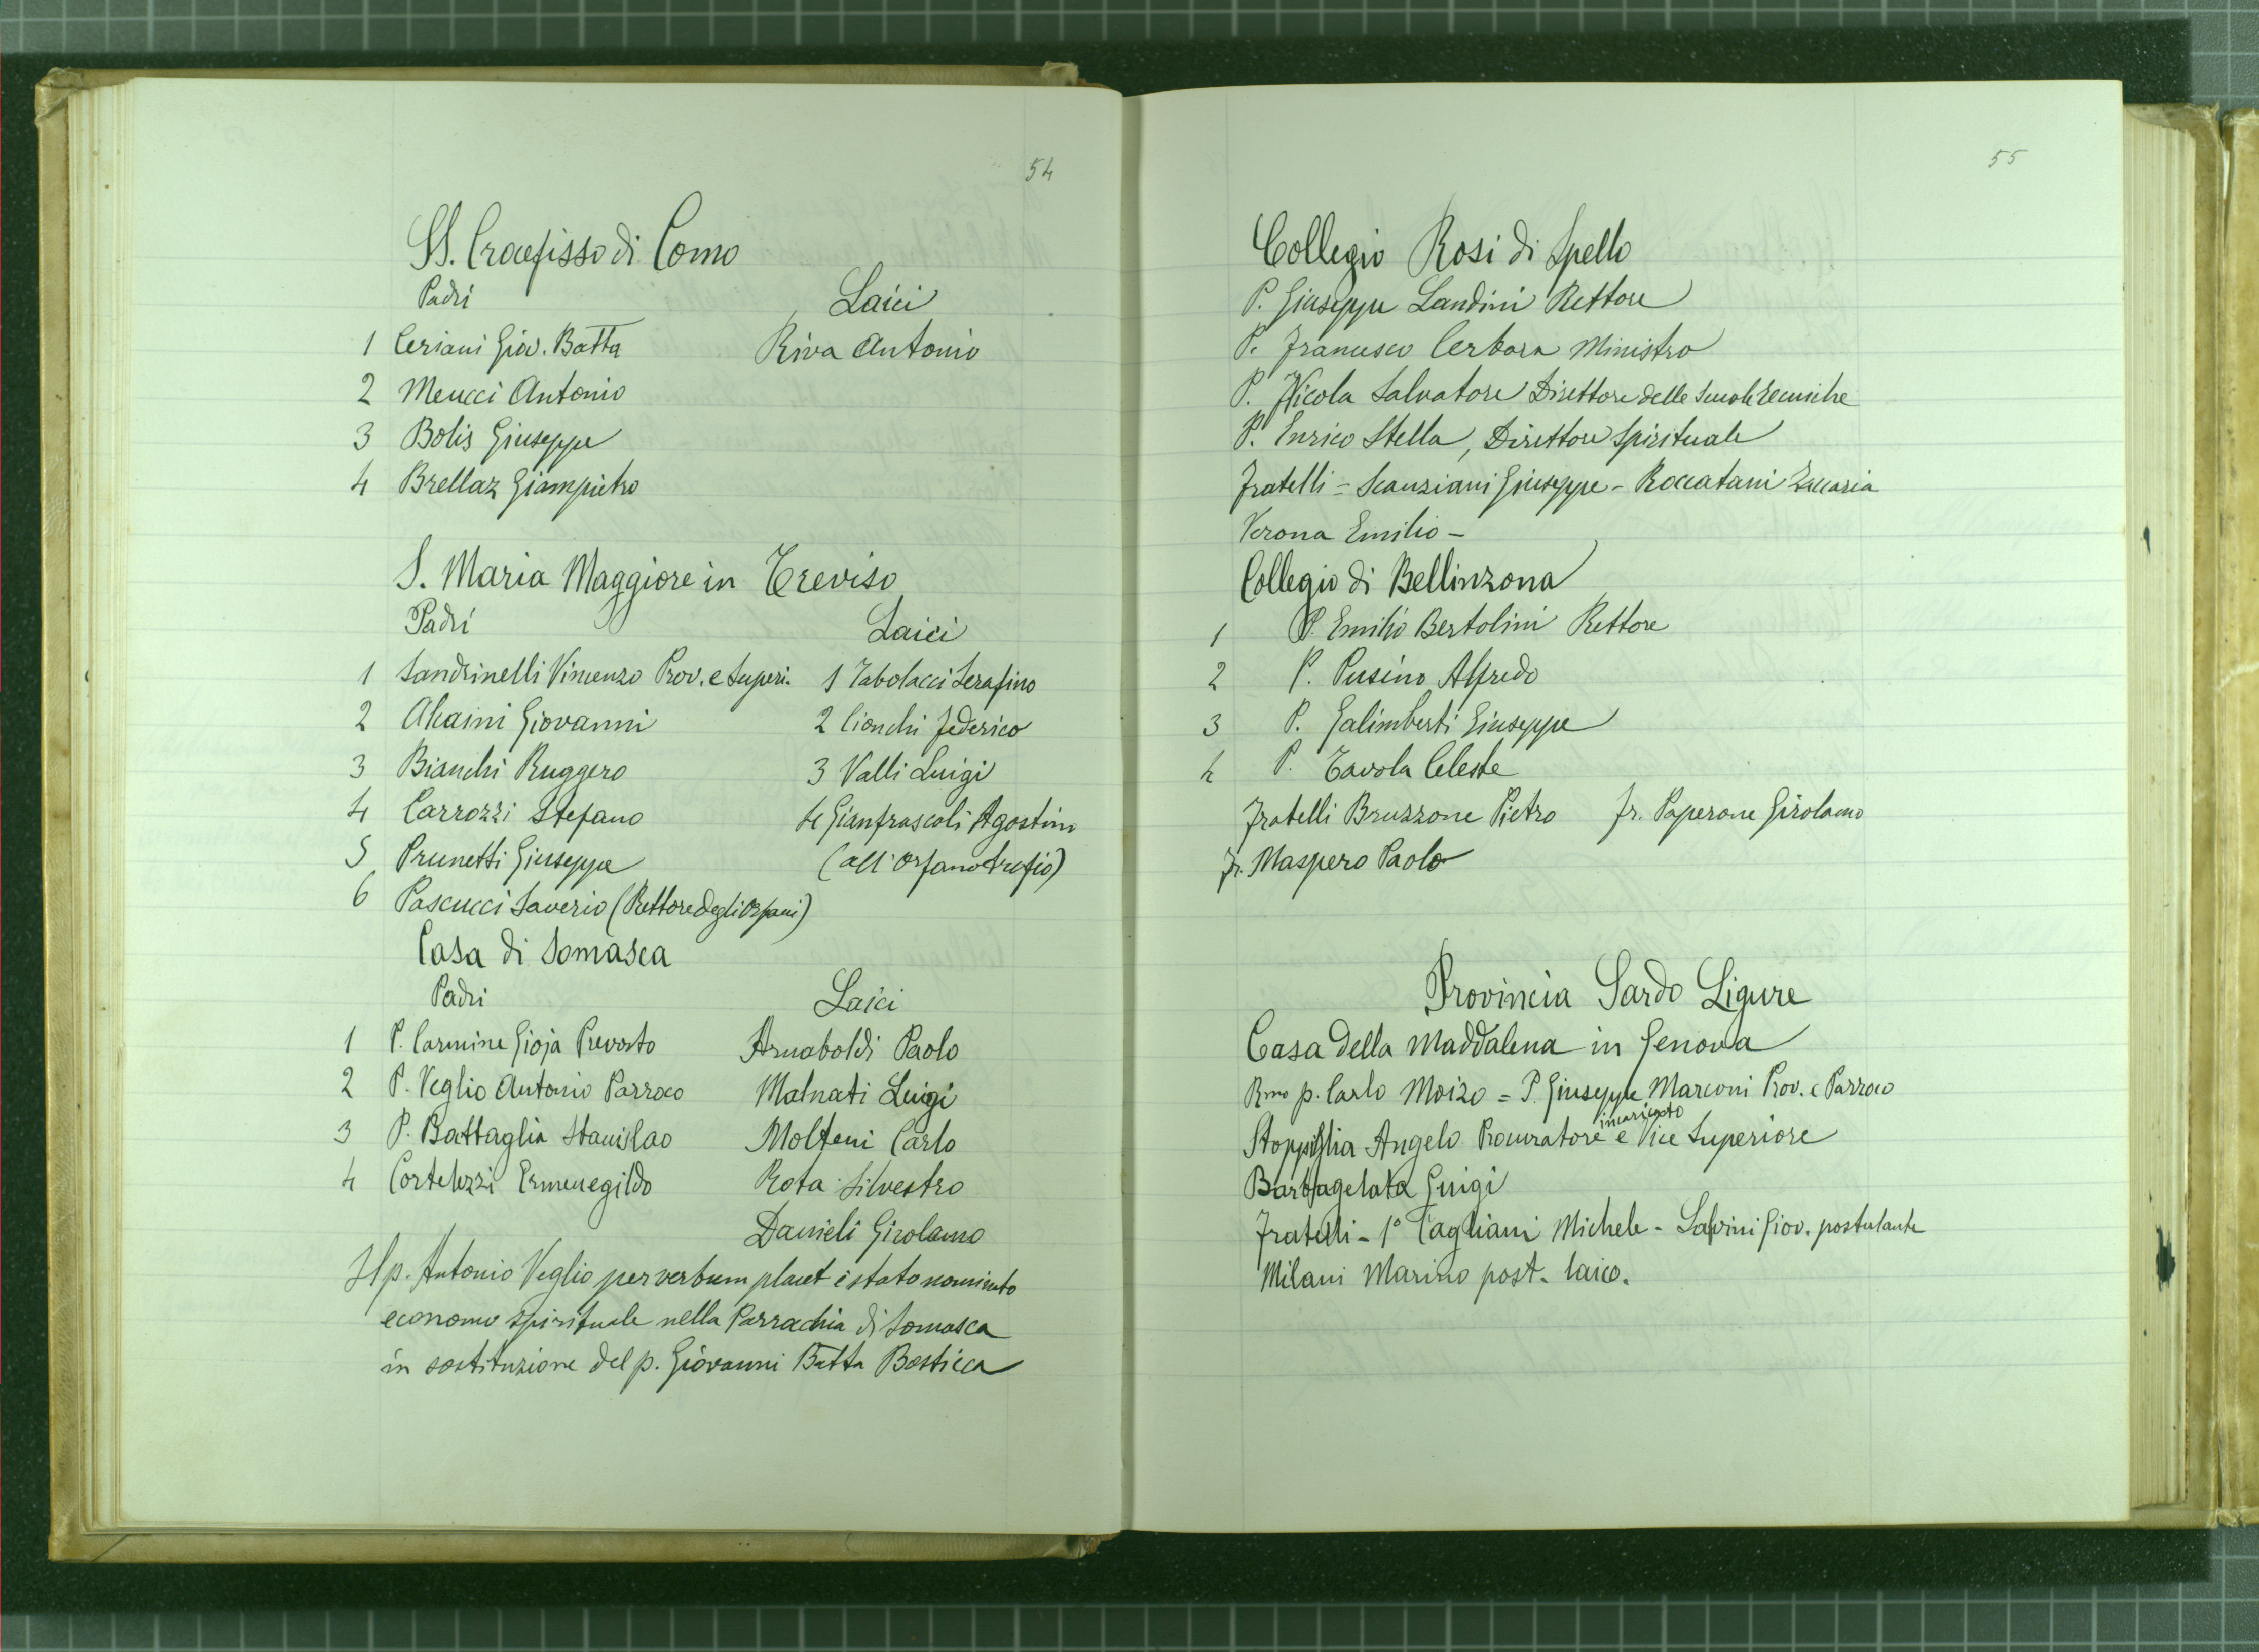 54
SS. Crocefisso di Como
Padri Laici
1 Ceriani Giov. Batta Riva Antonio
2 Meucci Antonio
3 Bolis Giuseppe
4 Brellaz Giampietro
S. Maria Maggiore in Treviso
Padri Laici
1 Sandrinelli Vincenzo Prov. e Superi. 1 Tabolacci Serafino
2 Alcaini Giovanni 2 Cionchi Federico
3 Bianchi Ruggero 3 Valli Luigi
4 Carrozzi Stefano 4 Gianfrascoli Agostino
5 Prunetti Giuseppe (all'Orfanotrofio)
6 Pascucci Saverio (Rettore degli Orfani)
Casa di Somasca
Padri Laici
1 P. Carmine Gioja Prevosto Arnaboldi Paolo
2 P. Veglio Antonio Parroco Malnati Luigi
3 P. Battaglia Stanislao Molteni Carlo
4 Cortelezzi Ermenegildo Rota Silvestro
Danieli Girolamo
Il p. Antonio Veglio per verbum placet è stato nominato
economo spirituale nella Parrochia di Somasca
in sostituzione del p. Giovanni Batta Bosticca
55
Collegio Rosi di Spello
P. Giuseppe Landini Rettore
P. Francesco Cerbara Ministro
P. Nicola Salvatore Direttore delle Scuole Tecniche
P. Enrico Stella, Direttore Spirituale
Fratelli = Scanziani Giuseppe - Roccatani Zaccaria
Verona Emilio -
Collegio di Bellinzona
1 P. Emilio Bertolini Rettore
2 P. Pusino Alfredo
3 P. Galimberti Giuseppe
4 P. Tavola Celeste
Fratelli Bruzzone Pietro fr. Paperone Girolamo
fr. Maspero Paolo
Provincia Sardo Ligure
Casa della Maddalena in Genova
Rmo p. Carlo Moizo = P. Giuseppe Marconi Prov. e Parroco
incaricato
Stoppiglia Angelo Procuratore e Vice Superiore
Barbagelata Luigi
Fratelli - 1° Cagliani Michele - Salvini Giov. postulante
Milani Marino post. laico.